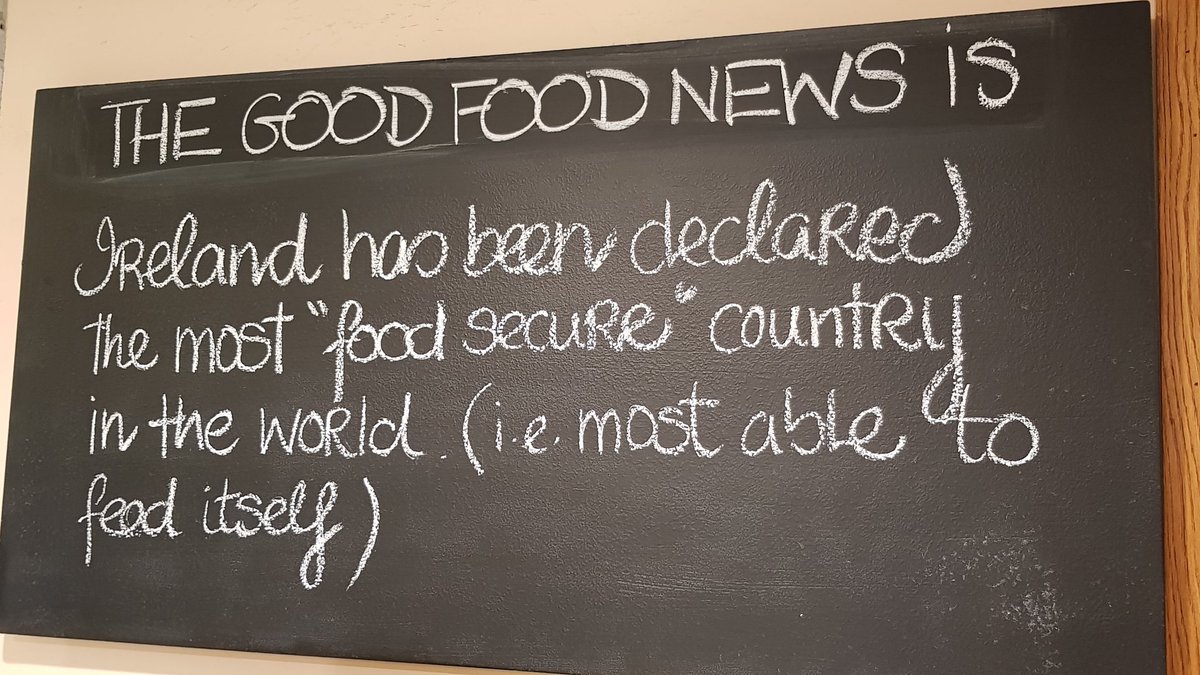 THE GOOD FOOD NEWS IS
Ireland has been declared
the most "food secure" country
in the world. (i.e. most able to
feed itself)